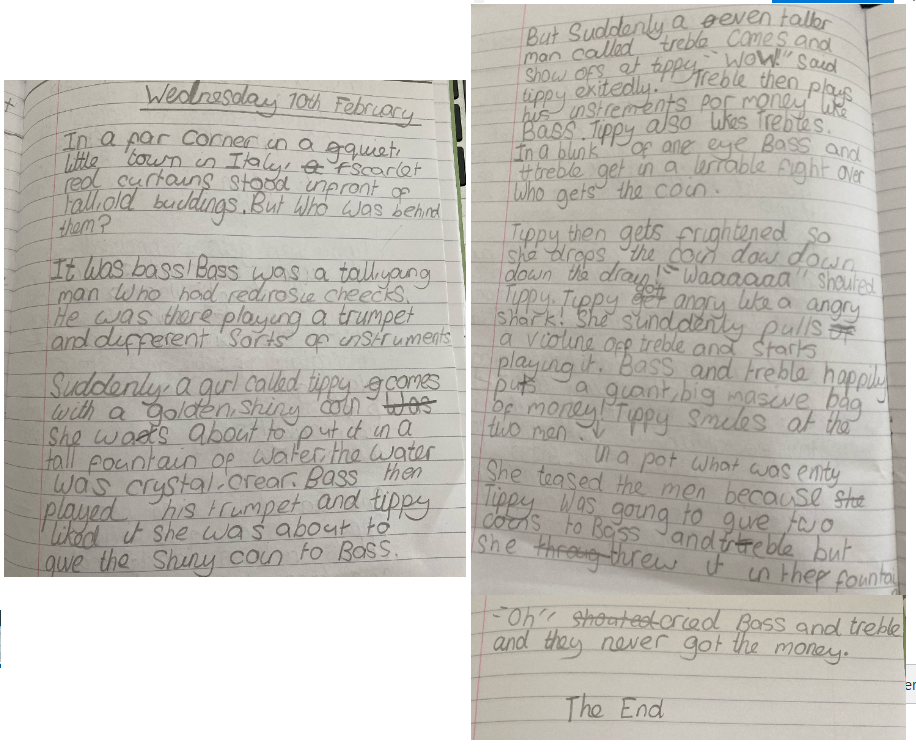 Wednesday 10th February
In a far corner in a qquiet,
little town in Italy, a fscarlet
red curtains stood infront of
tall,old buildings. But who was behind
them?
It was bass! Bass was a tall,yang
man who had red,rosie cheecks.
He was there playing a trumpet
and different sorts of instruments
Suddenly, a girl called tippy comes
with a golden, shiny coin was
she was about to put it in a
tall fountain of water, the water
was crystal, crear. Bass then
played his trumpet and tippy
liked it she was about to
give the shiny coin to Bass.
But Suddenly a even taller
man called treble comes and
show ofs at tippy "WoW!" said
tippy exitedly. Treble then plays
his instrements for money like
Bass. Tippy also likes Trebles.
In a blink of one eye Bass and
ttreble get in a terrable fight over
who gets the coin.
Tippy then gets frightened so
she drops the coin dow down
down the drayn! "Waaaaaa" shouted
Tippy. Tippy get got angry like a angry
shark! She sunddenly pulls of
a violine off treble and starts
playing it. Bass and treble happily
puts a giant, big masive bag
of money! Tippy smiles at the
two men. ↓
in a pot what was emty
She teased the men because she
Tippy was going to give two
coins to Bass and treble but
she throug threw it in ther fountai
"Oh" shouted cried Bass and treble
and they never got the money.
The End
er